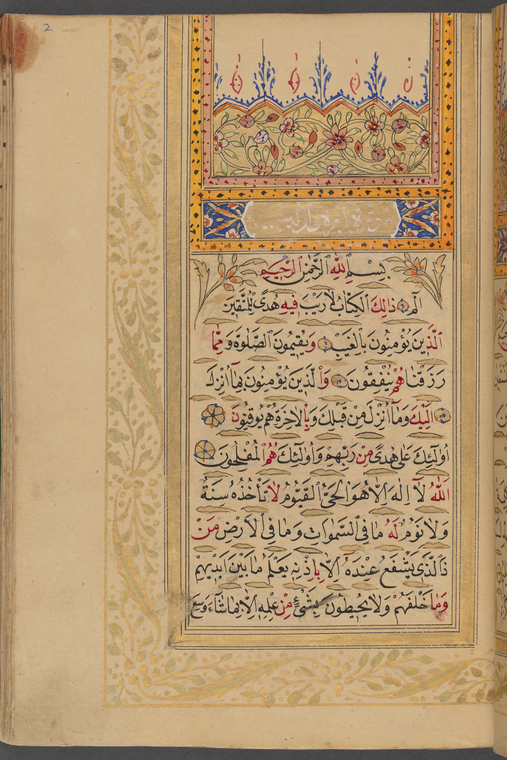 2
بِسْمِ اللهِ الرَّحْمٰنِ الرَّحِيمِ
الم ذَالِكَ الْكِتَابُ لَارَيْبَ فِيهِ هُدًى لِلْمُتَّقِينَ
الَّذِينَ يُؤْمِنُونَ بِالْغَيْبِ وَيُقِيمُونَ الصَّلٰوةَ وَمِمَّا
رَزَقْنَاهُمْ يُنْفِقُونَ وَالَّذِينَ يُؤْمِنُونَ بِمَا اُنْزِلَ
اِلَيْكَ وَمَا اُنْزِلَ مِنْ قَبْلِكَ وَبِالْاٰخِرَةِ هُمْ يُوقِنُونَ
اُولٰئِكَ عَلٰى هُدًى مِنْ رَبِّهِمْ وَاُولٰئِكَ هُمُ الْمُفْلِحُونَ
اَللهُ لَآ اِلٰهَ اِلَّا هُوَ الْحَيُّ الْقَيُّومُ لَا تَأْخُذُهُ سِنَةٌ
وَلَا نَوْمٌ لَهُ مَا فِي السَّمٰوَاتِ وَمَا فِي الْاَرْضِ مَنْ
ذَا الَّذِي يَشْفَعُ عِنْدَهُ اِلَّا بِاِذْنِهِ يَعْلَمُ مَا بَيْنَ اَيْدِيهِمْ
وَمَا خَلْفَهُمْ وَلَا يُحِيطُونَ بِشَئٍْ مِنْ عِلْمِهِ اِلَّا بِمَا شَآءَ وَسِعَ